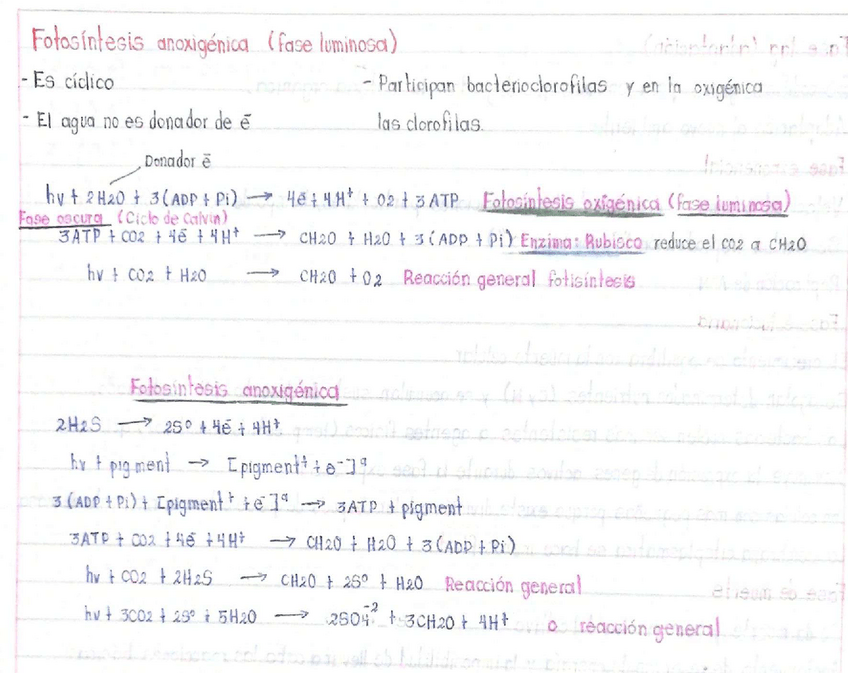 Fotosíntesis anoxigénica (fase luminosa)
- Es cíclico
- Participan bacterioclorofilas y en la oxigénica
- El agua no es donador de ē
las clorofilas.
Donador ē
hv + 2H2O + 3(ADP + Pi) → 4ē + 4H⁺ + O2 + 3ATP Fotosíntesis oxigénica (fase luminosa)
Fase oscura (Ciclo de Calvin)
3ATP + CO2 + 4ē + 4H⁺ → CH2O + H2O + 3(ADP + Pi) Enzima: Rubisco reduce el CO2 a CH2O
hv + CO2 + H2O → CH2O + O2 Reacción general fotisíntesis
Fotosíntesis anoxigénica
2H2S → 2S⁰ + 4ē + 4H⁺
hv + pigment → [pigment⁺ + e⁻]ᵃ
3(ADP + Pi) + [pigment⁺ + e⁻]ᵃ → 3ATP + pigment
3ATP + CO2 + 4ē + 4H⁺ → CH2O + H2O + 3(ADP + Pi)
hv + CO2 + 2H2S → CH2O + 2S⁰ + H2O Reacción general
hv + 3CO2 + 2S⁰ + 5H2O → 2SO4⁻² + 3CH2O + 4H⁺ o reacción general